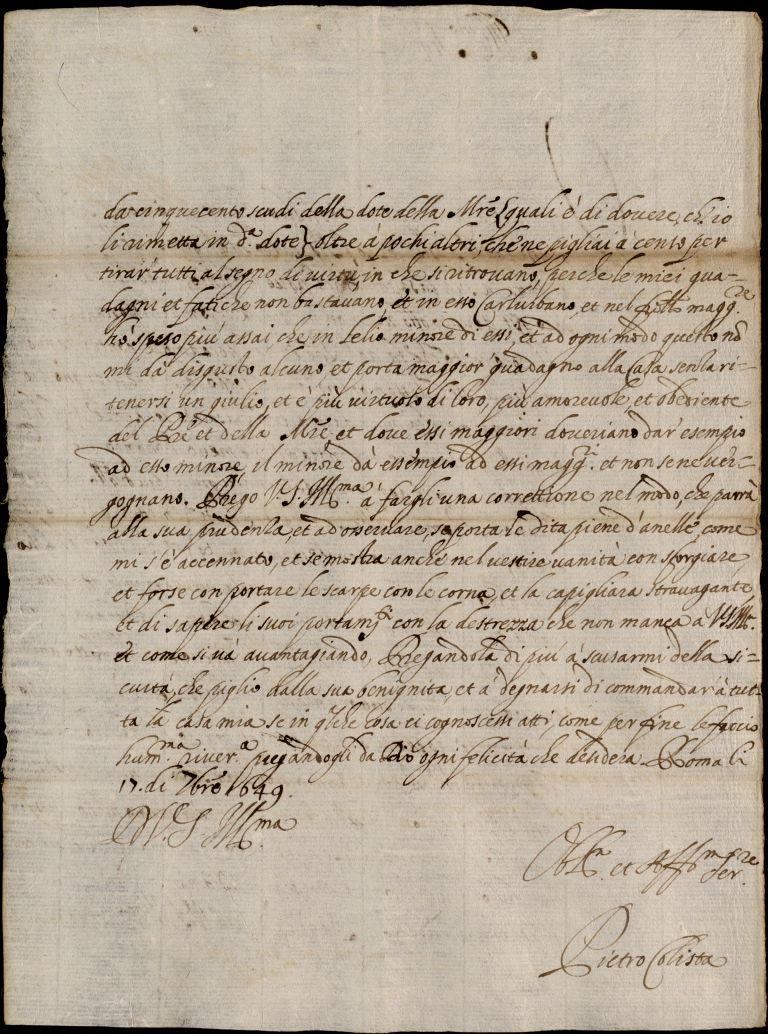 da cinquecento scudi della dote della Mre (quali è di dovere, ch'io
li rimetta in da. dote) oltre à pochi altri, che ne pigliai à censo per
tirar' tutti al segno di virtù, in che si ritrovano, perche le miei gua-
dagni et fatiche non bastavano, et in esso Carlurbano, et nel fratllo maggre
hò speso più assai che in Lelio minore di essi, et ad ogni modo questo nō
mi dà disgusto alcuno et porta maggior guadagno alla casa senza ri-
tenersi un giulio, et è più virtuoso di loro, più amorevole, et obediente
del Pre et della Mre, et dove essi maggiori doveriano dar' esempio
ad esso minore, il minore dà essempio ad essi maggri. et non se ne ver-
gognano. Prego V. S. Illma. à fargli una correttione nel modo, che parrà
alla sua prudenza, et ad osservare, se porta le dita piene d'anelle, come
mi s'è accennato, et se mostra anche nel vestire vanità con sforgiare
et forse con portare le scarpe con le corna, et la capigliara stravagante
et di sapere li suoi portamti con la destrezza che non manca à V. S. Ill.
et come si và avantagiando, Pregandola di più à scusarmi della si-
curtà, che piglio dalla sua benignita, et à degnarsi di commandar' à tut-
ta la casa mia se in qlche cosa ci cognoscessi atti, come per fine le faccio
humma. river.a pregandogli da Dio ogni felicità che desidera. Roma li
17. di 7bre 1649.
D V. S. Illma
Obllmo. et Affmo. sre
ser.
Pietro Colista